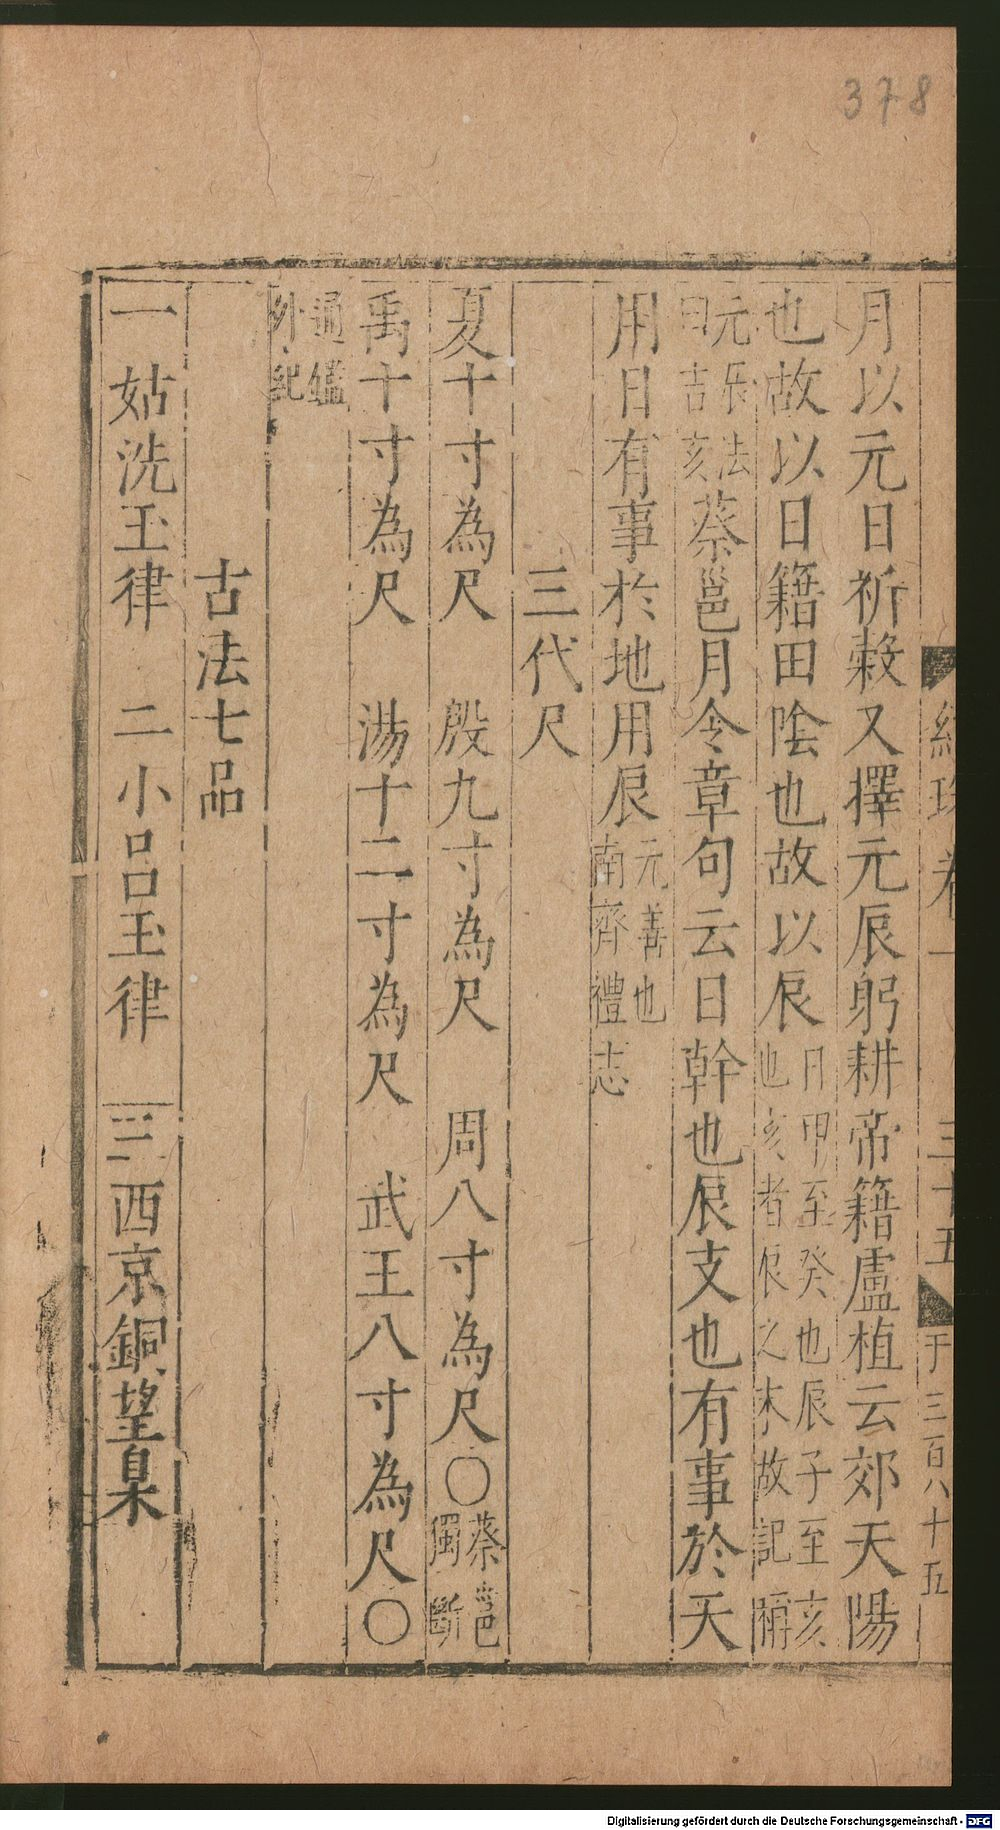 378
卷一
三十五
于三百八十五
月以元日祈穀又擇元辰躬耕帝籍盧植云郊天陽
也故以日籍田陰也故以辰日甲至癸也辰子至亥
也亥者辰之末故記稱
元辰法
曰吉亥蔡邕月令章句云日幹也辰支也有事於天
用日有事於地用辰元善也
南齊禮志
三代尺
夏十寸為尺　殷九寸為尺　周八寸為尺〇蔡邕
獨斷
禹十寸為尺　湯十二寸為尺　武王八寸為尺〇
通鑑
外紀
古法七品
一姑洗玉律　二小呂玉律　三西京銅望臬
Digitalisierung gefördert durch die Deutsche Forschungsgemeinschaft - DFG